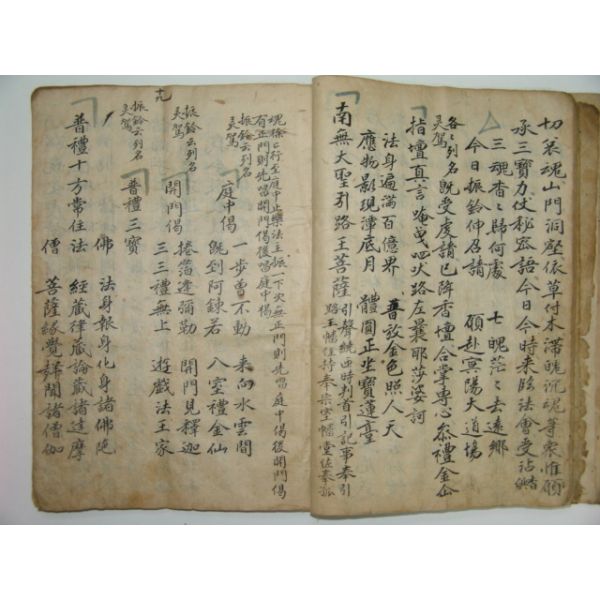 切衰魂山門洞壑依草付木滯魄沉魂等衆惟願
承三寶力仗秘密語今日今時來臨法會受沾香供
三魂杳杳歸何處 七魄茫茫去遠鄉
今日振鈴伸召請 願赴冥陽大道場
各各列名 灵駕 既受虔請已降香壇合掌專心叅禮金仙
指壇真言 唵 曳呬吠路左曩耶莎婆訶
法身遍滿百億界 普放金色照人天
應物影現潭底月 體圓正坐寶蓮臺
南無大聖引路王菩薩 引聲繞匝時判首引記事奉引路王幡維持奉
魂徐徐行至庭中止樂法主振一下次無正門則先當庭中偈後開門偈
有正門則先當開門偈後當庭中偈
振鈴云列名
灵駕
庭中偈 一步曾不動 來向水雲間
既到阿鍊若 入室禮金仙
振鈴云列名
灵駕
開門偈 捲箔逢彌勒 開門見釋迦
三三禮無上 遊戲法王家
振鈴云列名
灵駕
普禮三寶
十九
普禮十方常住
佛 法身報身化身諸佛陀
法 經藏律藏論藏諸達摩
僧 菩薩緣覺聲聞諸僧伽